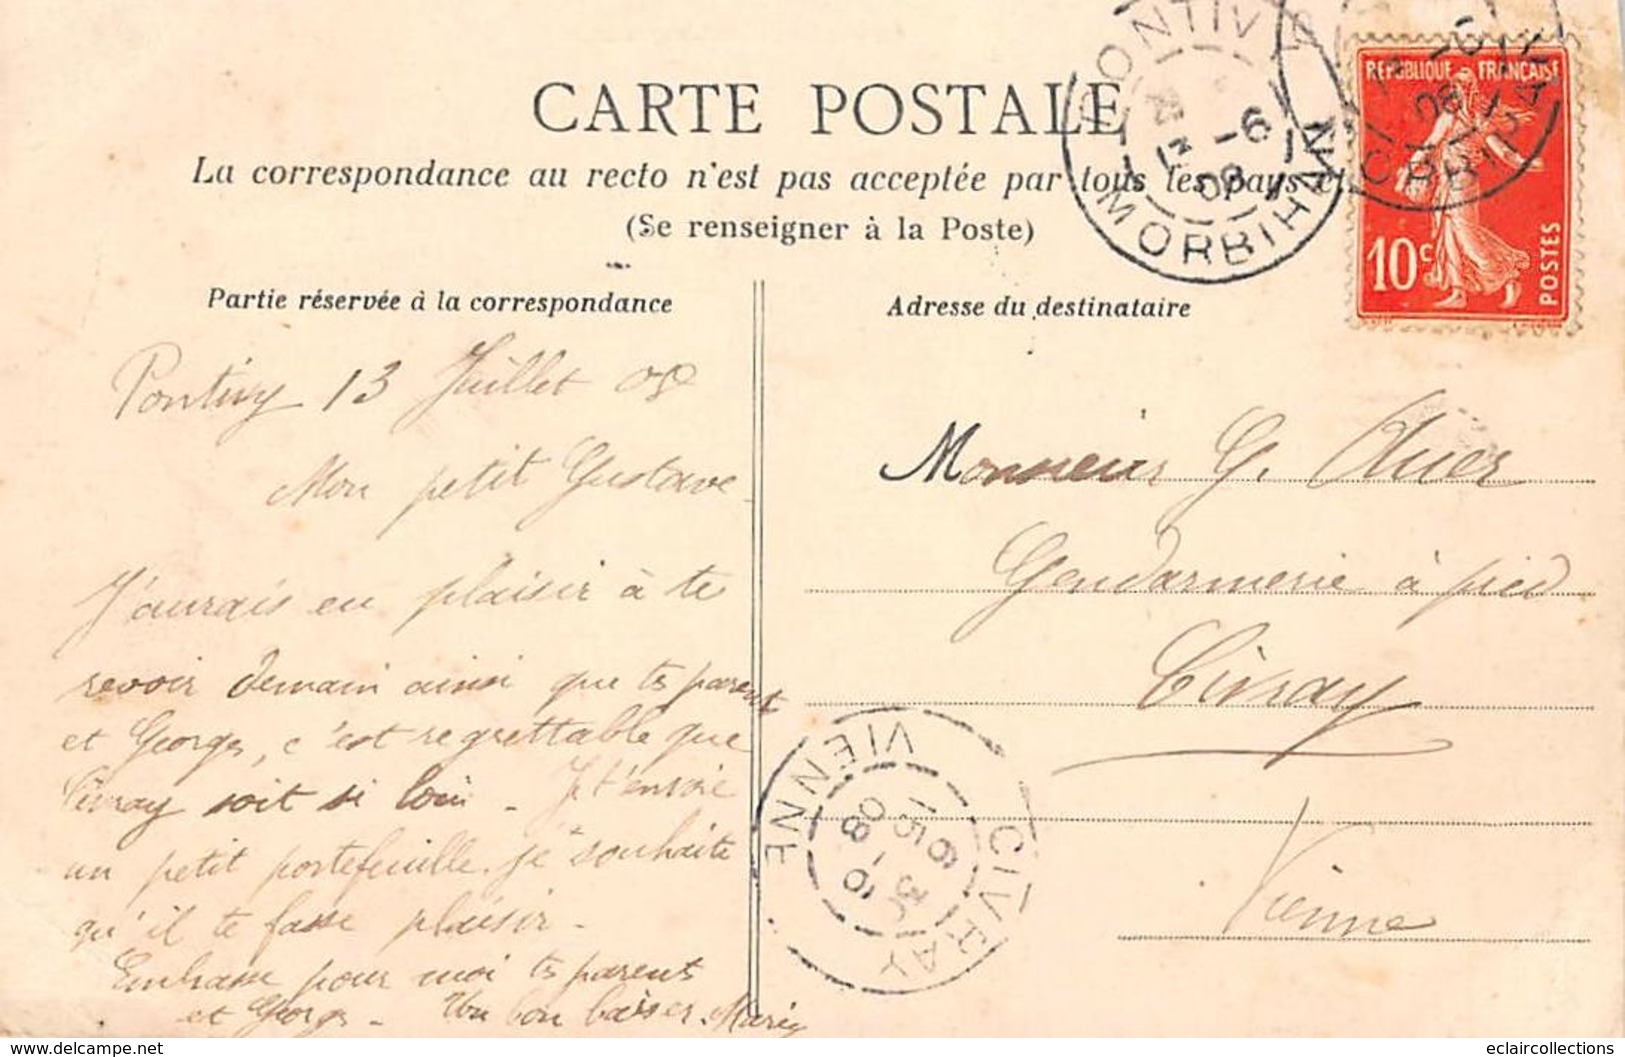 CARTE POSTALE
La correspondance au recto n'est pas acceptée par tous les pays
(Se renseigner à la Poste)
Partie réservée à la correspondance
Adresse du destinataire
PONTIVY
MORBIHAN
REPUBLIQUE FRANÇAISE
10c
POSTES
Pontivy 13 Juillet 08
Mon petit Gustave
J'aurais eu plaisir à te
revoir demain ainsi que ts parents
et Georges, c'est regrettable que
Civray soit si loin - Je t'envoie
un petit portefeuille. Je souhaite
qu'il te fasse plaisir -
Embrasse pour moi ts parents
et Georges - Un bon baiser. Marie
Monsieur G.
Gendarmerie à pied
Civray
Vienne
CIVRAY
VIENNE
eclaircollections
www.delcampe.net